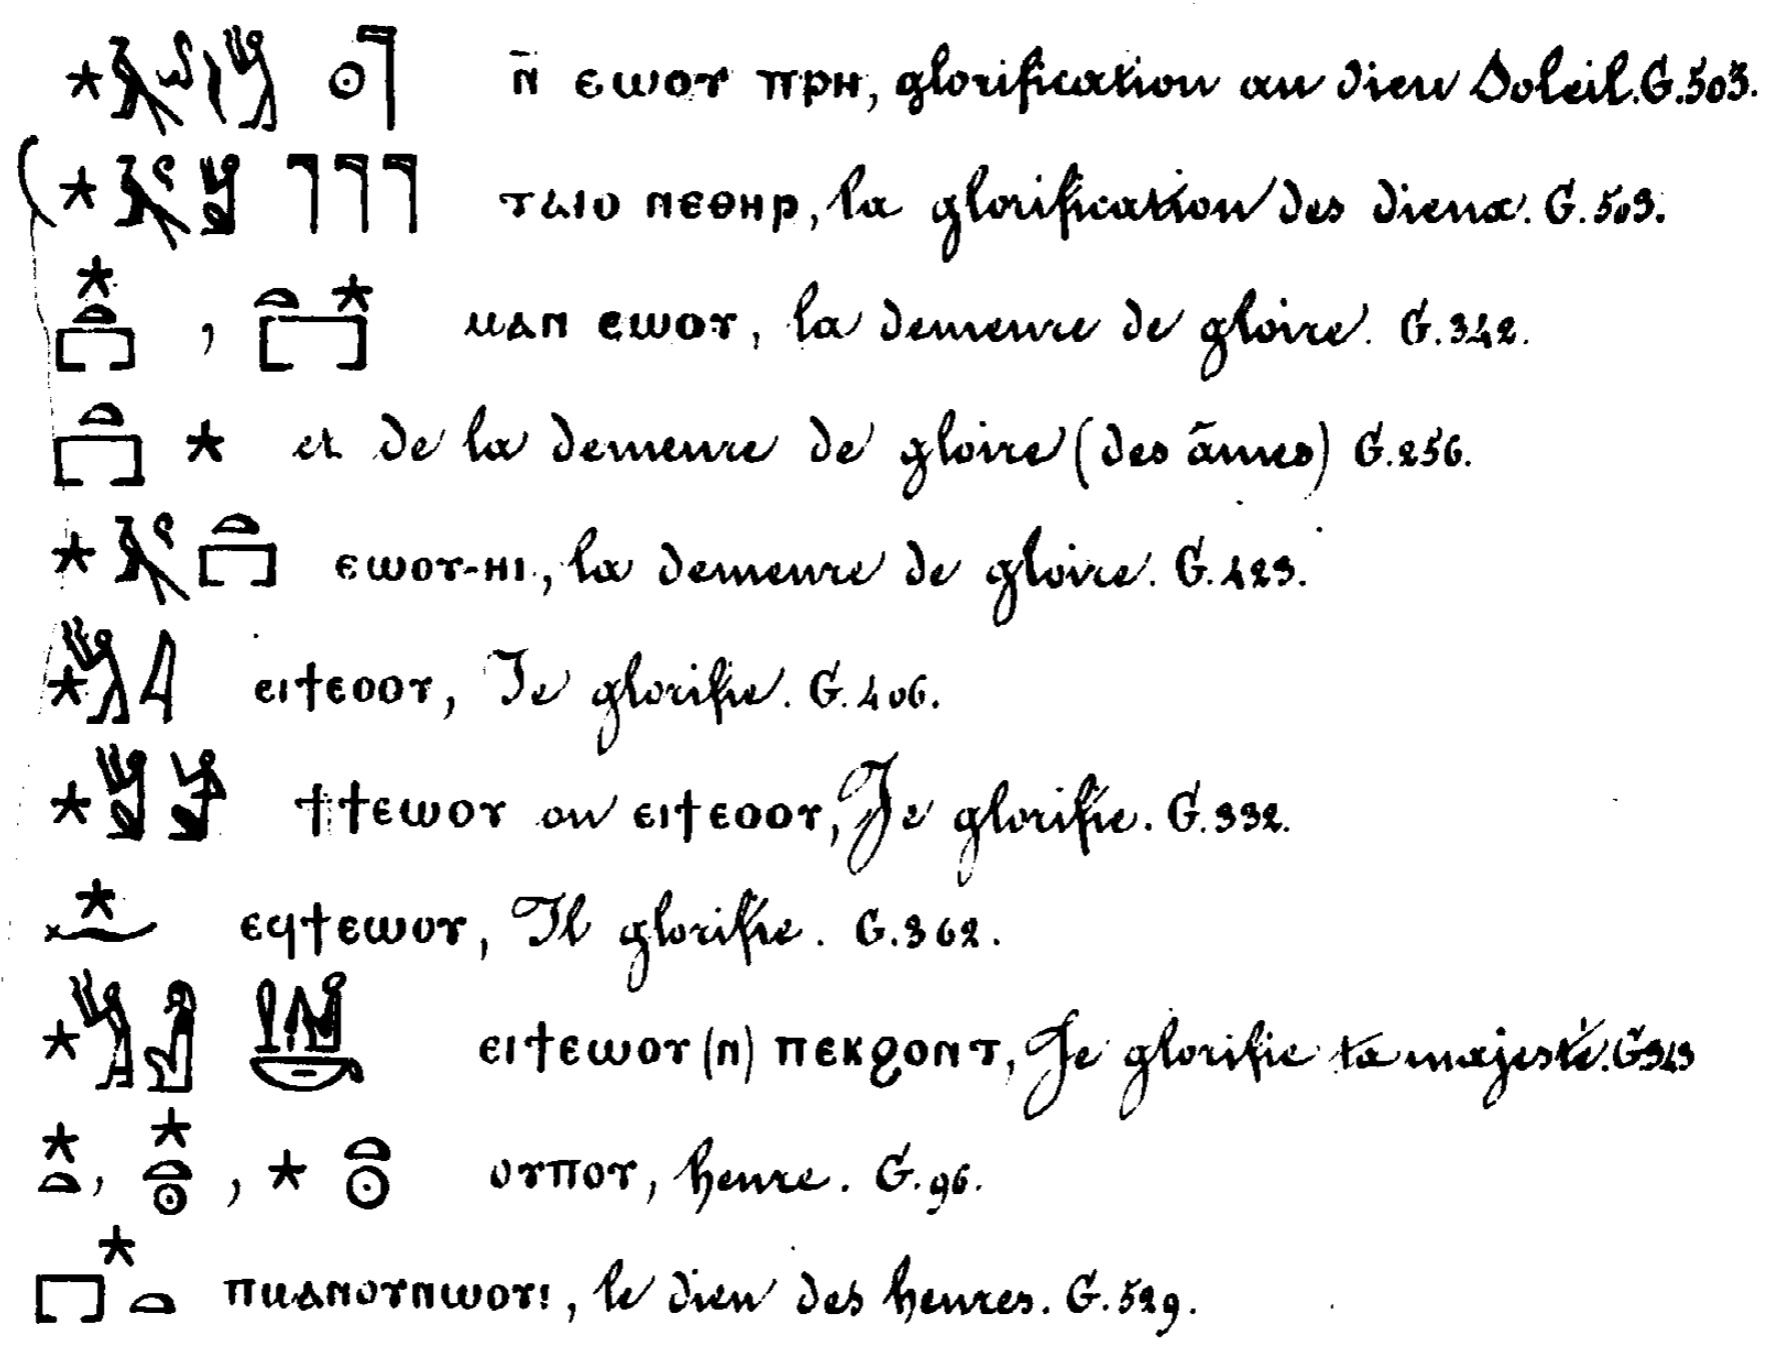 𓇼𓀀 𓇳𓊹 ⲛ̄ ⲉⲱⲟⲩ ⲡⲣⲏ, glorification au dieu Soleil. G. 503.
𓇼 𓊹𓊹𓊹 ⲧⲁⲓⲟ ⲛⲉⲑⲏⲣ, la glorification des dieux. G. 503.
𓇼𓏏𓉐, 𓏏𓇼𓉐 ⲙⲁⲛ ⲉⲱⲟⲩ, la demeure de gloire. G. 342.
𓏏𓉐𓇼 et de la demeure de gloire (des âmes) G. 256.
𓇼 𓏏𓉐 ⲉⲱⲟⲩ-ⲏⲓ, la demeure de gloire. G. 423.
𓇼 ⲉⲓϯⲉⲟⲟⲩ, Je glorifie. G. 406.
𓇼 ϯϯⲉⲱⲟⲩ ou ⲉⲓϯⲉⲟⲟⲩ, Je glorifie. G. 332.
𓇼𓆑 ⲉϥϯⲉⲱⲟⲩ, Il glorifie. G. 362.
𓇼 ⲉⲓϯⲉⲱⲟⲩ (ⲛ) ⲡⲉⲕϩⲟⲛⲧ, Je glorifie ta majesté.
𓇼𓏏, 𓇼𓏏𓇳, 𓇼𓏏𓇳 ⲟⲩⲛⲟⲩ, heure. G. 96.
𓉐𓇼𓏏 ⲡⲙⲁⲛⲟⲩⲛⲱⲟⲩⲓ, le dieu des heures. G. 529.